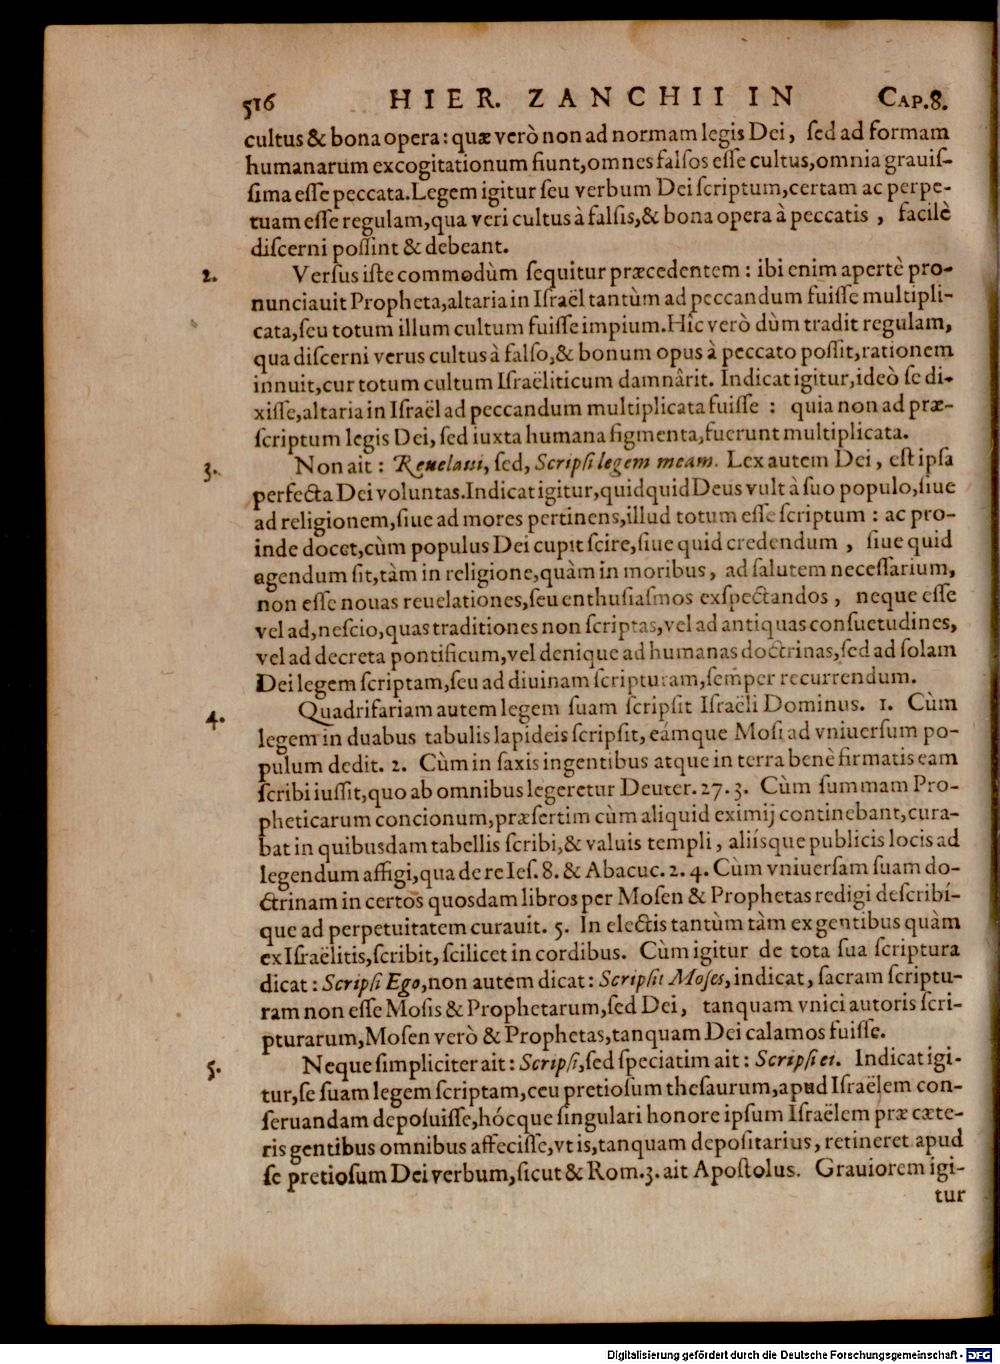 516 HIER. ZANCHII IN CAP.8.
cultus & bona opera: quæ verò non ad normam legis Dei, ſed ad formam
humanarum excogitationum fiunt, omnes falſos eſſe cultus, omnia grauiſ-
ſima eſſe peccata. Legem igitur ſeu verbum Dei ſcriptum, certam ac perpe-
tuam eſſe regulam, qua veri cultus à falſis, & bona opera à peccatis, facilè
diſcerni poſſint & debeant.
2. Verſus iſte commodùm ſequitur præcedentem: ibi enim apertè pro-
nunciauit Propheta, altaria in Iſraël tantùm ad peccandum fuiſſe multipli-
cata, ſeu totum illum cultum fuiſſe impium. Hîc verò dùm tradit regulam,
qua diſcerni verus cultus à falſo, & bonum opus à peccato poſſit, rationem
innuit, cur totum cultum Iſraëliticum damnârit. Indicat igitur, ideò ſe di-
xiſſe, altaria in Iſraël ad peccandum multiplicata fuiſſe: quia non ad præ-
ſcriptum legis Dei, ſed iuxta humana figmenta, fuerunt multiplicata.
3. Non ait: Reuelaui, ſed, Scripſi legem meam. Lex autem Dei, eſt ipſa
perfecta Dei voluntas. Indicat igitur, quidquid Deus vult à ſuo populo, ſiue
ad religionem, ſiue ad mores pertinens, illud totum eſſe ſcriptum: ac pro-
inde docet, cùm populus Dei cupit ſcire, ſiue quid credendum, ſiue quid
agendum ſit, tàm in religione, quàm in moribus, ad ſalutem neceſſarium,
non eſſe nouas reuelationes, ſeu enthuſiaſmos exſpectandos, neque eſſe
vel ad, neſcio, quas traditiones non ſcriptas, vel ad antiquas conſuetudines,
vel ad decreta pontificum, vel denique ad humanas doctrinas, ſed ad ſolam
Dei legem ſcriptam, ſeu ad diuinam ſcripturam, ſemper recurrendum.
4. Quadrifariam autem legem ſuam ſcripſit Iſraëli Dominus. 1. Cùm
legem in duabus tabulis lapideis ſcripſit, eámque Moſi ad vniuerſum po-
pulum dedit. 2. Cùm in ſaxis ingentibus atque in terra benè firmatis eam
ſcribi iuſſit, quo ab omnibus legeretur Deuter. 27. 3. Cùm ſummam Pro-
pheticarum concionum, præſertim cùm aliquid eximij continebant, cura-
bat in quibusdam tabellis ſcribi, & valuis templi, aliísque publicis locis ad
legendum affigi, qua de re Ieſ. 8. & Abacuc. 2. 4. Cùm vniuerſam ſuam do-
ctrinam in certos quosdam libros per Moſen & Prophetas redigi deſcribí-
que ad perpetuitatem curauit. 5. In electis tantùm tàm ex gentibus quàm
ex Iſraëlitis, ſcribit, ſcilicet in cordibus. Cùm igitur de tota ſua ſcriptura
dicat: Scripſi Ego, non autem dicat: Scripſit Moſes, indicat, ſacram ſcriptu-
ram non eſſe Moſis & Prophetarum, ſed Dei, tanquam vnici autoris ſcri-
pturarum, Moſen verò & Prophetas, tanquam Dei calamos fuiſſe.
5. Neque ſimpliciter ait: Scripſi, ſed ſpeciatim ait: Scripſi ei. Indicat igi-
tur, ſe ſuam legem ſcriptam, ceu pretioſum theſaurum, apud Iſraëlem con-
ſeruandam depoſuiſſe, hócque ſingulari honore ipſum Iſraëlem præ cæte-
ris gentibus omnibus affeciſſe, vt is, tanquam depoſitarius, retineret apud
ſe pretioſum Dei verbum, ſicut & Rom. 3. ait Apoſtolus. Grauiorem igi-
tur
Digitalisierung gefördert durch die Deutsche Forschungsgemeinschaft - DFG